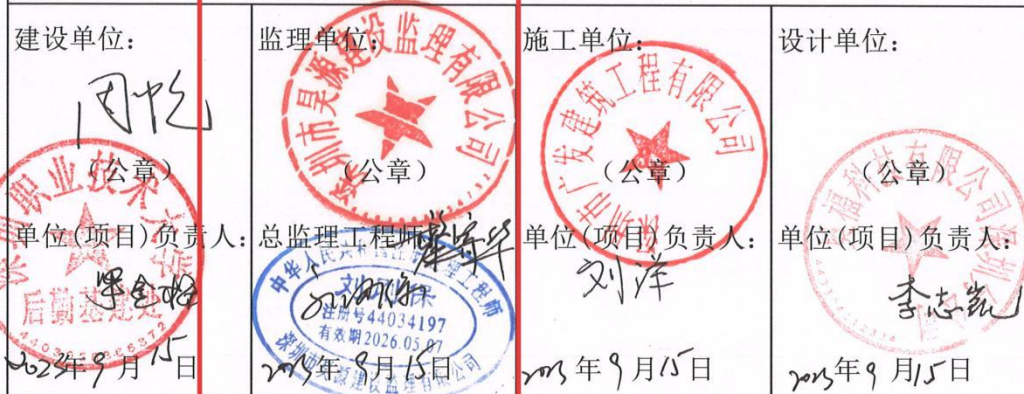 建设单位：
周忱
（公章）
深圳职业技术大学
后勤基建处
单位(项目)负责人：
2023年9月15日
监理单位：
深圳市昊源建设监理有限公司
（公章）
总监理工程师
中华人民共和国注册监理工程师
注册号44034197
有效期2026.05.07
深圳市昊源建设监理有限公司
2023年9月15日
施工单位：
深圳市广发建筑工程有限公司
（公章）
单位(项目)负责人：
刘洋
2023年9月15日
设计单位：
（公章）
福科技有限公司
单位(项目)负责人：
李志凯
2023年9月15日